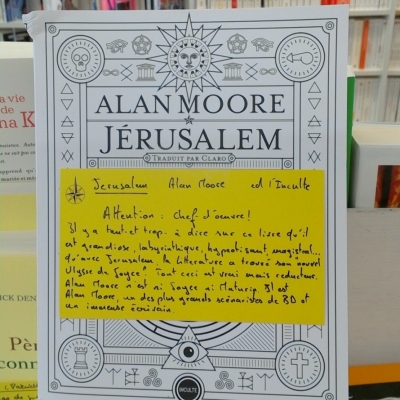 a vie
de
na K
ALAN MOORE
JÉRUSALEM
TRADUIT PAR CLARO
Jerusalem Alan Moore ed l'Inculte
Attention : Chef d'oeuvre!
Il y a tant et trop à dire sur ce livre qu'il
est grandiose, labyrinthique, hypnotisant, magistral...
qu'avec Jerusalem, la littérature a trouvé son "nouvel
Ulysse de Joyce". Tout ceci est vrai mais réducteur.
Alan Moore n'est ni Joyce ni Maturin. Il est
Alan Moore, un des plus grands scénaristes de BD et
un immense écrivain.
CK DEN
Pè
conn
INCULTE